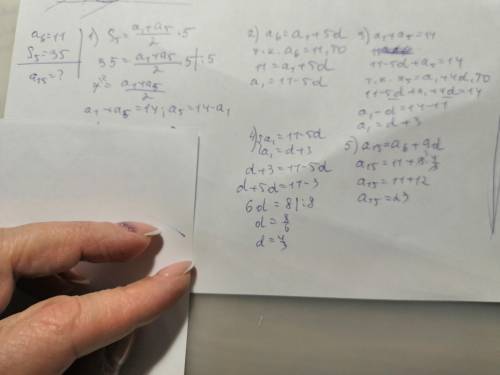 a₆=11
S₅=35
a₁₅=?
1) S₅=(a₁+a₅)/2·5
35=(a₁+a₅)/2·5|:5
7=(a₁+a₅)/2
a₁+a₅=14; a₅=14-a₁
2) a₆=a₁+5d
т.к. a₆=11, то
11=a₁+5d
a₁=11-5d
3) a₁+a₅=14
11-5d+a₅=14
т.к. a₅=a₁+4d, то
11-5d+a₁+4d=14
a₁-d=14-11
a₁=d+3
4) {a₁=11-5d
a₁=d+3
d+3=11-5d
d+5d=11-3
6d=8|:8
d=8/6
d=4/3
5) a₁₅=a₆+9d
a₁₅=11+9·4/3
a₁₅=11+12
a₁₅=23